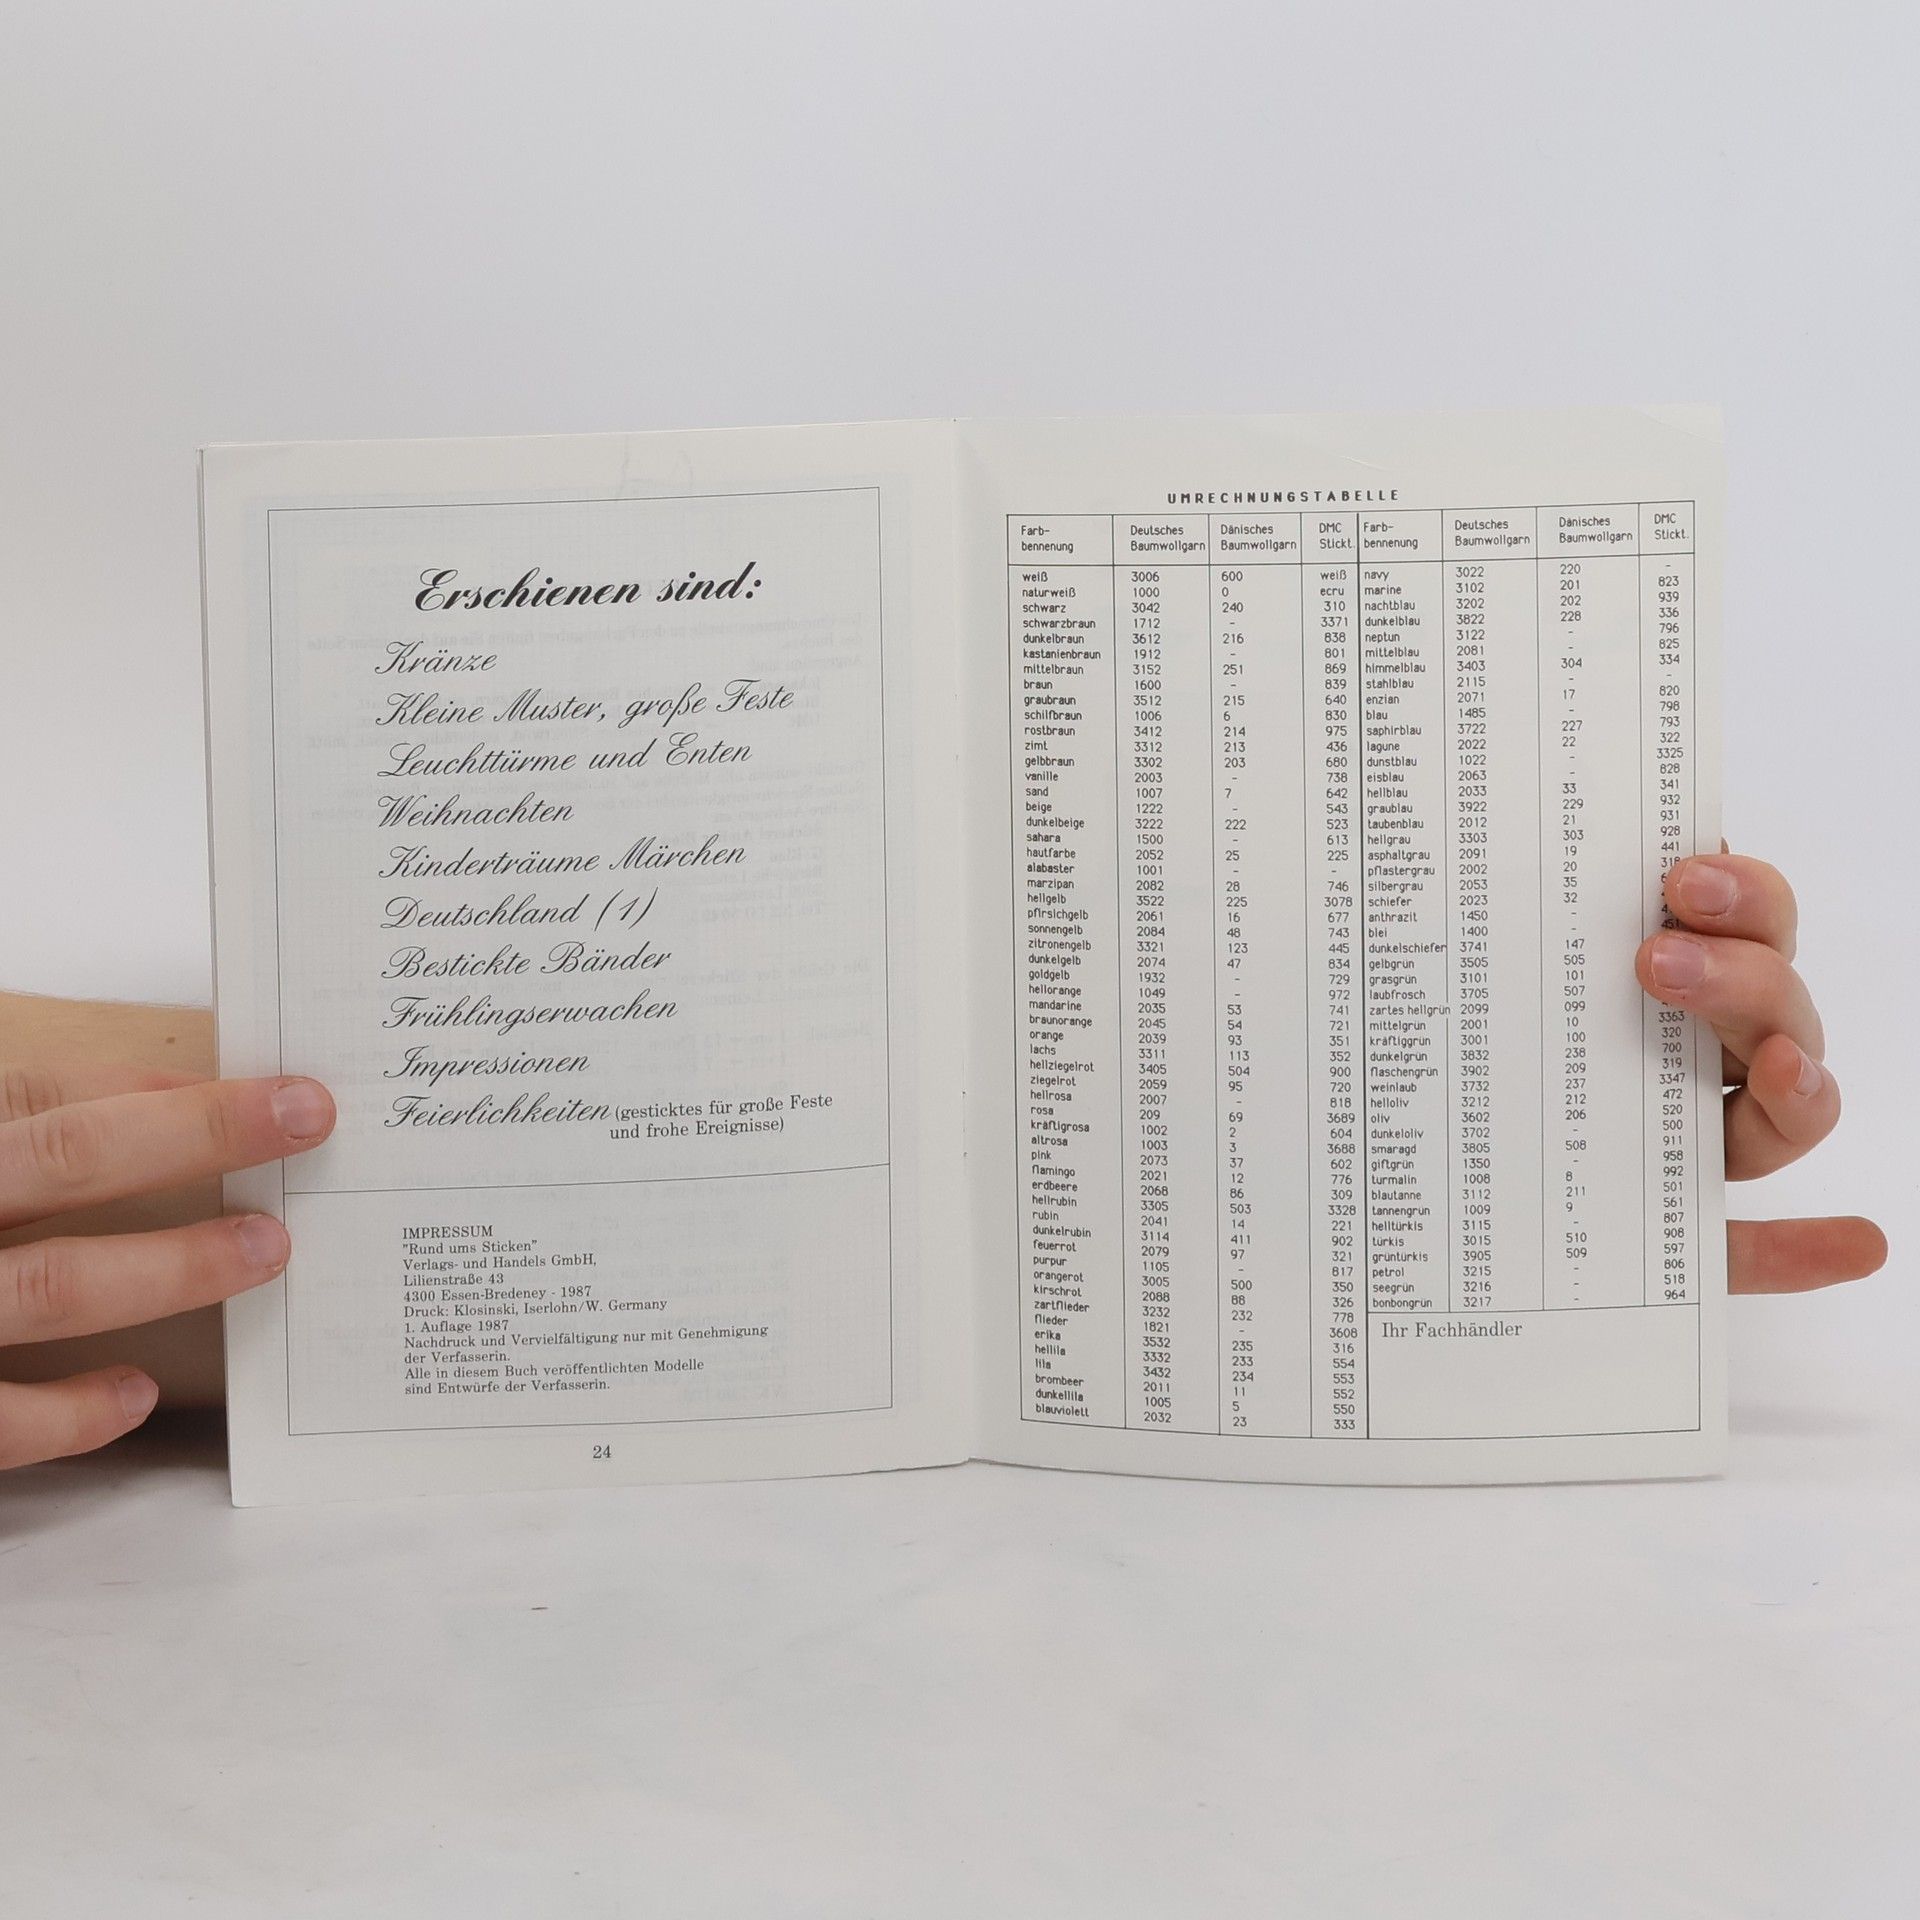 Erschienen sind:
Kränze
Kleine Muster, große Feste
Leuchttürme und Enten
Weihnachten
Kinderträume Märchen
Deutschland (1)
Bestickte Bänder
Frühlingserwachen
Impressionen
Feierlichkeiten (gesticktes für große Feste
und frohe Ereignisse)
IMPRESSUM
"Rund ums Sticken"
Verlags- und Handels GmbH,
Lilienstraße 43
4300 Essen-Bredeney - 1987
Druck: Klosinski, Iserlohn/W. Germany
1. Auflage 1987
Nachdruck und Vervielfältigung nur mit Genehmigung
der Verfasserin.
Alle in diesem Buch veröffentlichten Modelle
sind Entwürfe der Verfasserin.
24
UMRECHNUNGSTABELLE
Farb- Deutsches Dänisches DMC
bennenung Baumwollgarn Baumwollgarn Stickt.
weiß 3006 600 weiß
naturweiß 1000 0 ecru
schwarz 3042 240 310
schwarzbraun 1712 - 3371
dunkelbraun 3612 216 838
kastanienbraun 1912 - 801
mittelbraun 3152 251 869
braun 1600 - 839
graubraun 3512 215 640
schilfbraun 1006 6 830
rostbraun 3412 214 975
zimt 3312 213 436
gelbbraun 3302 203 680
vanille 2003 - 738
sand 1007 7 642
beige 1222 - 543
dunkelbeige 3222 222 523
sahara 1500 - 613
hautfarbe 2052 25 225
alabaster 1001 - -
marzipan 2082 28 746
hellgelb 3522 225 3078
pfirsichgelb 2061 16 677
sonnengelb 2084 48 743
zitronengelb 3321 123 445
dunkelgelb 2074 47 834
goldgelb 1932 - 729
hellorange 1049 - 972
mandarine 2035 53 741
braunorange 2045 54 721
orange 2039 93 351
lachs 3311 113 352
hellziegelrot 3405 504 900
ziegelrot 2059 95 720
hellrosa 2007 - 818
rosa 209 69 3689
kräftigrosa 1002 2 604
altrosa 1003 3 3688
pink 2073 37 602
flamingo 2021 12 776
erdbeere 2068 86 309
hellrubin 3305 503 3328
rubin 2041 14 221
dunkelrubin 3114 411 902
feuerrot 2079 97 321
purpur 1105 - 817
orangerot 3005 500 350
kirschrot 2088 88 326
zartflieder 3232 232 778
flieder 1821 - 3608
erika 3532 235 316
hellila 3332 233 554
lila 3432 234 553
brombeer 2011 11 552
dunkellila 1005 5 550
blauviolett 2032 23 333
Farb- Deutsches Dänisches DMC
bennenung Baumwollgarn Baumwollgarn Stickt.
navy 3022 220 -
marine 3102 201 823
nachtblau 3202 202 939
dunkelblau 3822 228 336
neptun 3122 - 796
mittelblau 2081 - 825
himmelblau 3403 304 334
stahlblau 2115 - -
enzian 2071 17 820
blau 1485 - 798
saphirblau 3722 227 793
lagune 2022 22 322
dunstblau 1022 - 3325
eisblau 2063 - 828
hellblau 2033 33 341
graublau 3922 229 932
taubenblau 2012 21 931
hellgrau 3303 303 928
asphaltgrau 2091 19 441
pflastergrau 2002 20
silbergrau 2053 35
schiefer 2023 32
anthrazit 1450 -
blei 1400 -
dunkelschiefer 3741 147
gelbgrün 3505 505
grasgrün 3101 101
laubfrosch 3705 507
zartes hellgrün 2099 099
mittelgrün 2001 10 3363
kräftiggrün 3001 100 320
dunkelgrün 3832 238 700
flaschengrün 3902 209 319
weinlaub 3732 237 3347
helloliv 3212 212 472
oliv 3602 206 520
dunkeloliv 3702 - 500
smaragd 3805 508 911
giftgrün 1350 - 958
turmalin 1008 8 992
blautanne 3112 211 501
tannengrün 1009 9 561
helltürkis 3115 - 807
türkis 3015 510 908
grüntürkis 3905 509 597
petrol 3215 - 806
seegrün 3216 - 518
bonbongrün 3217 - 964
Ihr Fachhändler